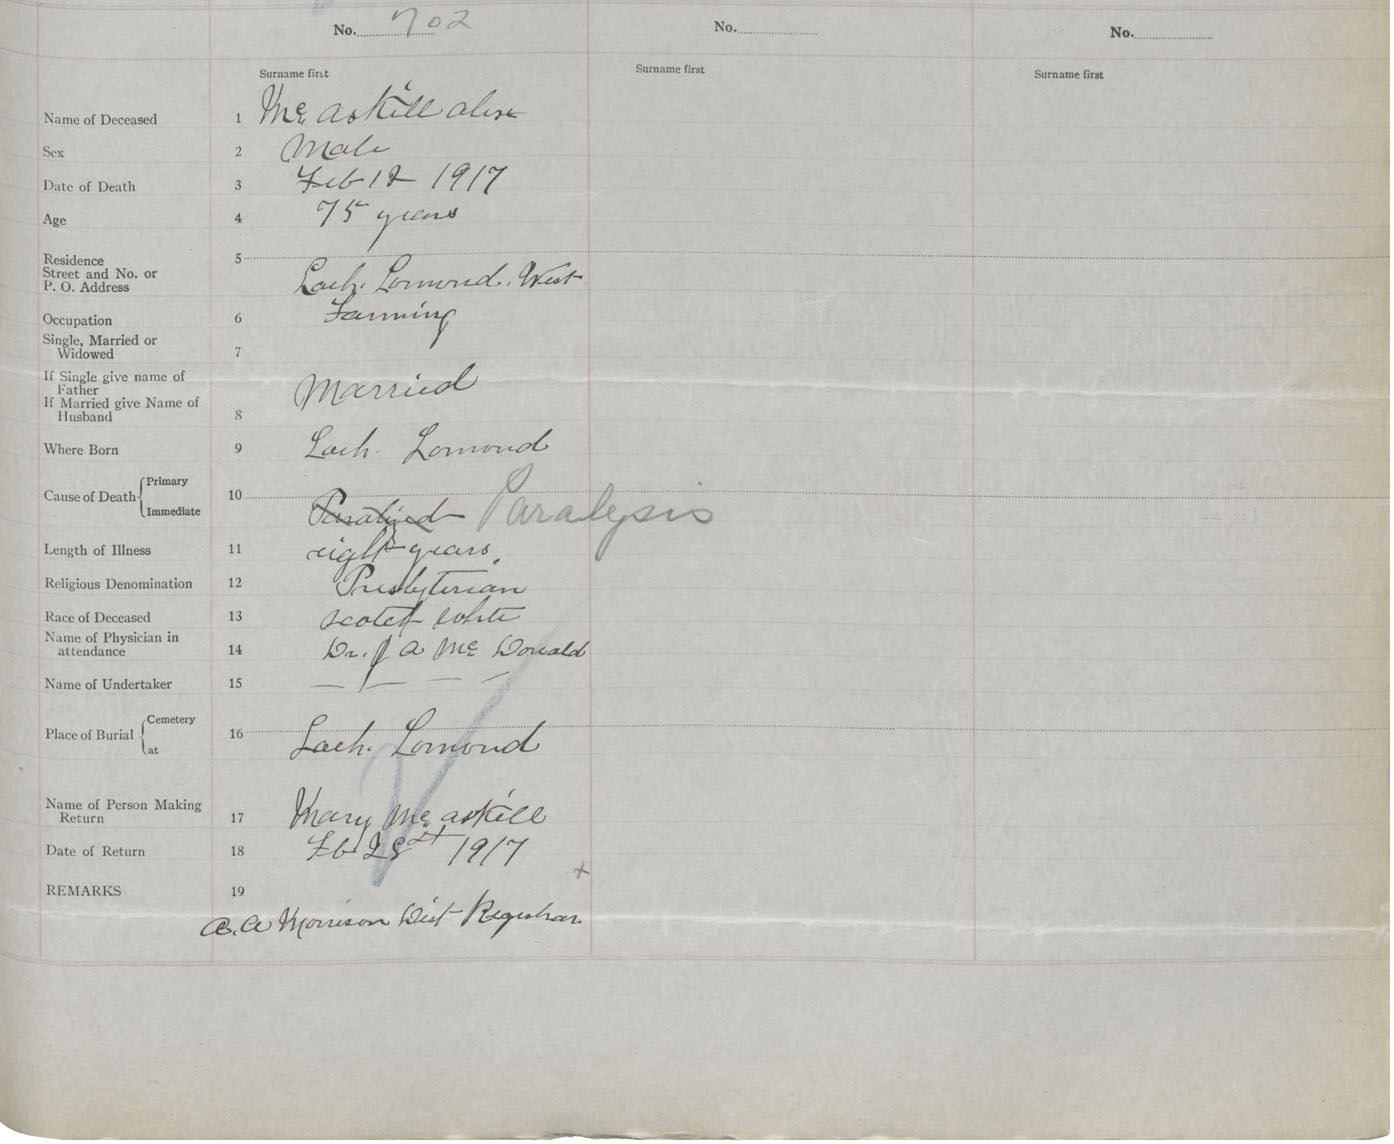 No. 702
No.
No.
Surname first
Surname first
Surname first
Name of Deceased 1 Mc askill
Sex 2 Male
Date of Death 3 Feb 1917
Age 4 75 years
Residence 5
Street and No. or
P. O. Address Loch. Lomond. West
Occupation 6 Farming
Single, Married or
Widowed 7
If Single give name of
Father Married
If Married give Name of
Husband 8
Where Born 9 Loch. Lomond
Cause of Death Primary
10
Immediate Paralized Paralysis
Length of Illness 11 eight years
Religious Denomination 12 Presbyterian
Race of Deceased 13 scotch white
Name of Physician in
attendance 14 Dr. J A Mc Donald
Name of Undertaker 15 — — — —
Place of Burial Cemetery
16
at Loch. Lomond
Name of Person Making
Return 17 Mary Mc askill
Date of Return 18 Feb 1917
REMARKS 19
A Morrison Dist Registrar